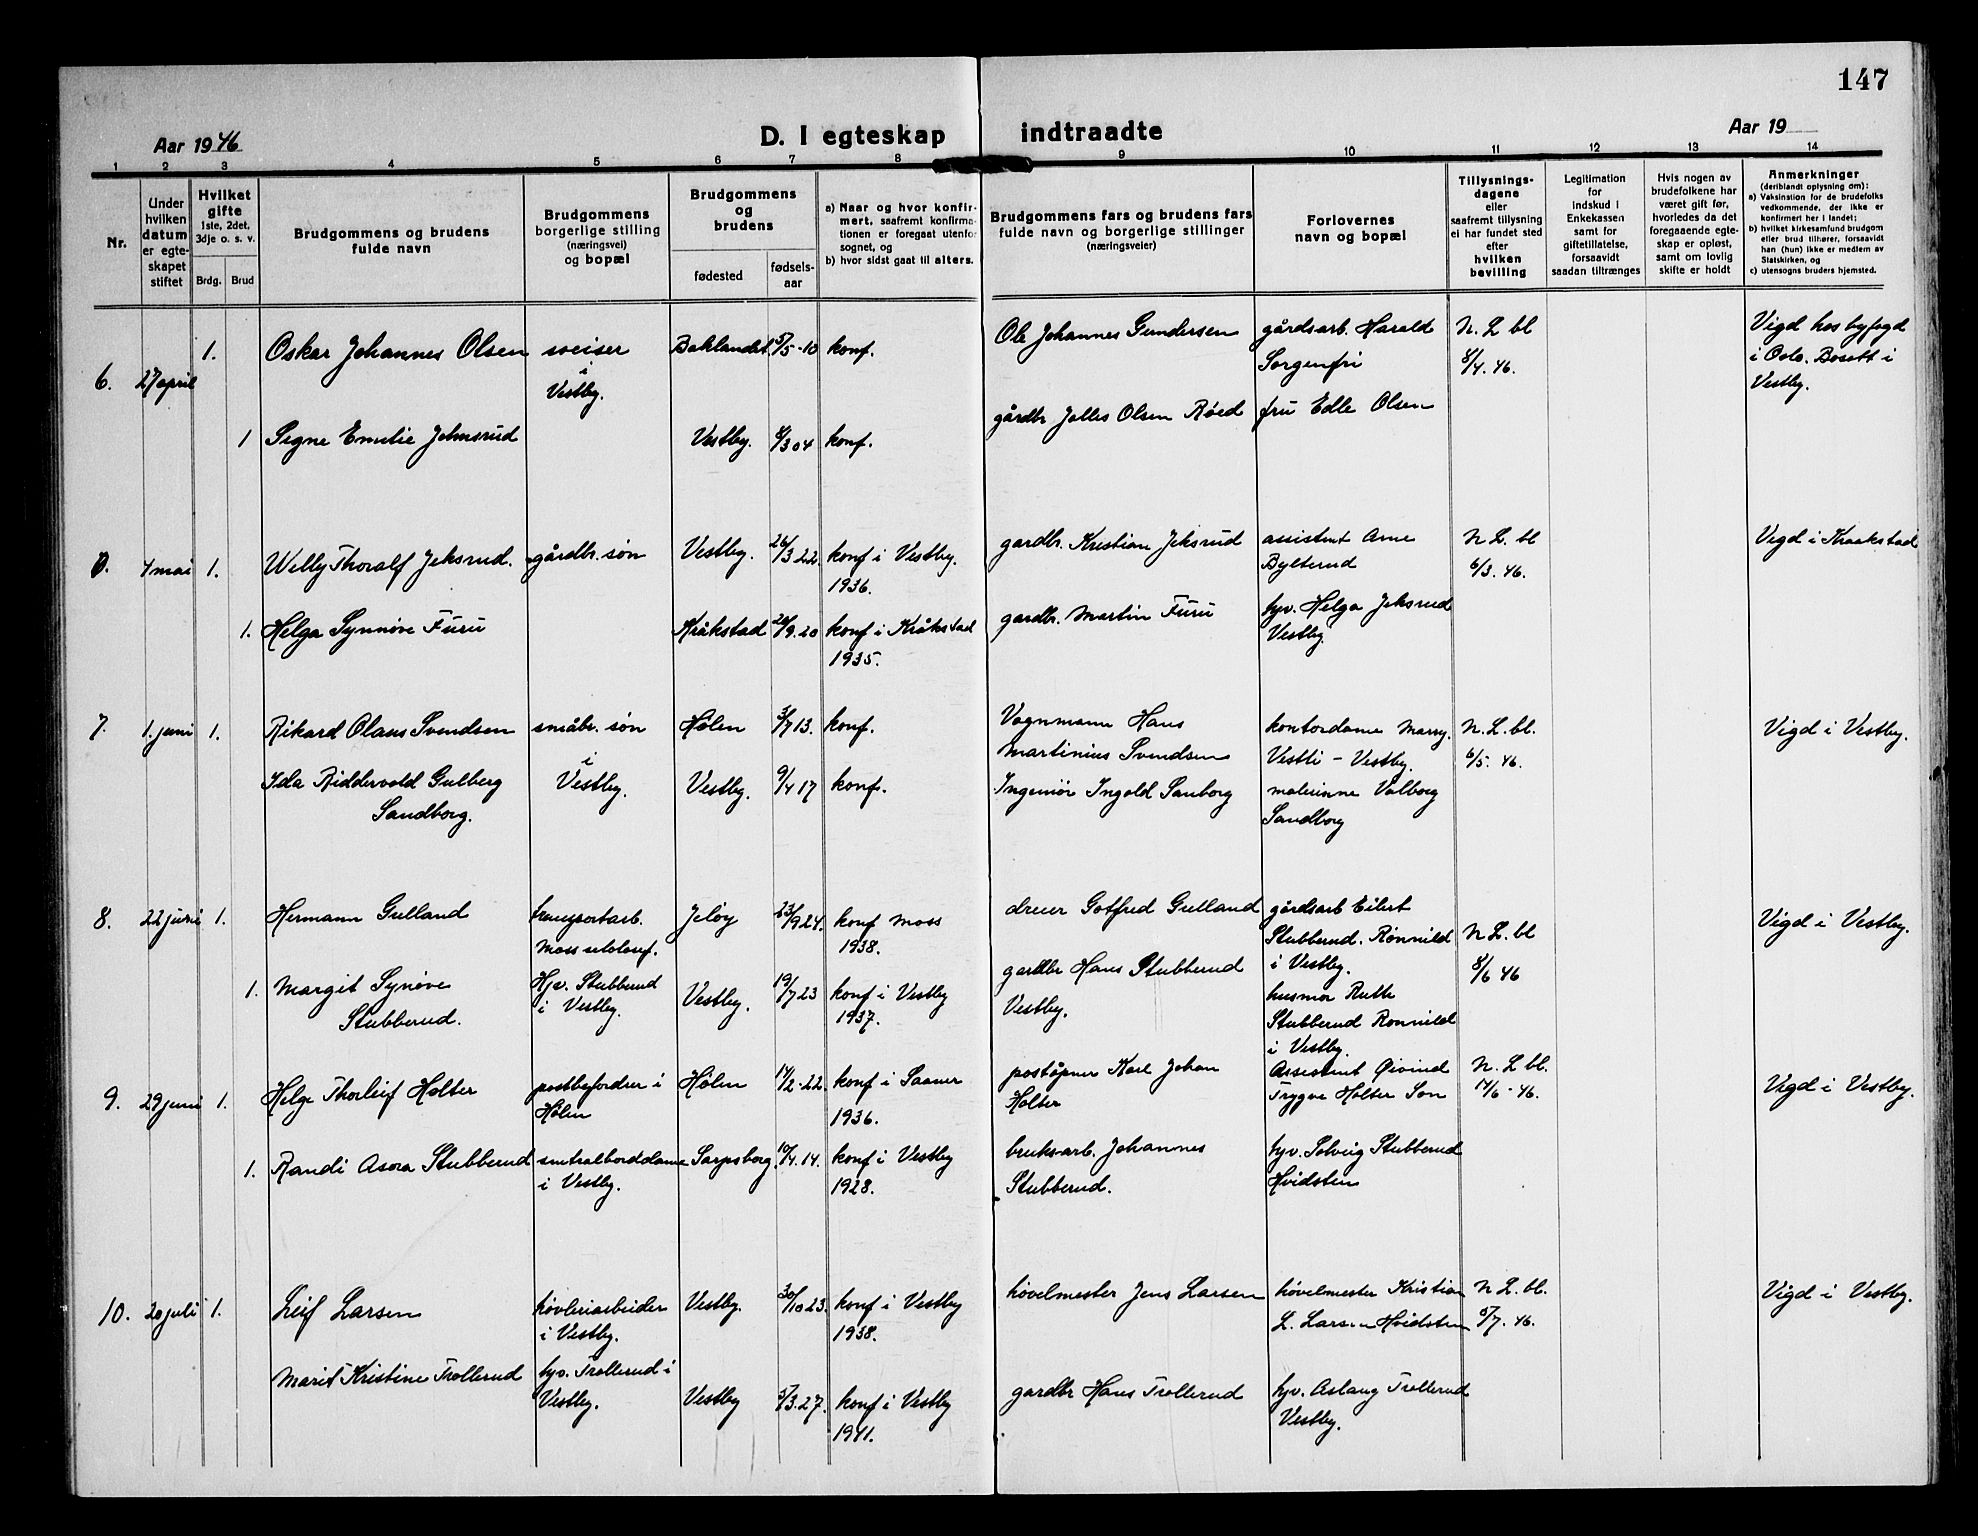 147
Aar 1946
D. I egteskap indtraadte
Aar 19
1 2 3 4 5 6 7 8 9 10 11 12 13 14
Nr.
Under
hvilken
datum
er egte-
skapet
stiftet
Hvilket
gifte
1ste, 2det,
3dje o. s. v.
Brdg. Brud
Brudgommens og brudens
fulde navn
Brudgommens
borgerlige stilling
(næringsvei)
og bopæl
Brudgommens
og
brudens
fødested
fødsels-
aar
a) Naar og hvor konfir-
mert, saafremt konfirma-
tionen er foregaat utenfor
sognet, og
b) hvor sidst gaat til alters.
Brudgommens fars og brudens fars
fulde navn og borgerlige stillinger
(næringsveier)
Forlovernes
navn og bopæl
Tillysnings-
dagene
eller
saafremt tillysning
ei har fundet sted
efter
hvilken
bevilling
Legitimation
for
indskud i
Enkekassen
samt for
giftetillatelse,
forsaavidt
saadan tiltrænges
Hvis nogen av
brudefolkene har
været gift før,
hvorledes da det
foregaaende egte-
skap er opløst,
samt om lovlig
skifte er holdt
Anmerkninger
(deriblandt oplysning om):
a) Vaksination for de brudefolks
vedkommende, der ikke er
konfirmert her i landet;
b) hvilket kirkesamfund brudgom
eller brud tilhører, forsaavidt
han (hun) ikke er medlem av
Statskirken, og
c) utensogns bruders hjemsted.
6. 27 april 1.
Oskar Johannes Olsen
sveiser
i
Vestby.
Baklandet 5/5-10 konf.
Ole Johannes Gundersen
gårdsarb. Harald
Sorgenfri
N. L. bl
8/4. 46.
Vigd hos byfogd
i Oslo. Bosatt i
Vestby.
1 Signe Emilie Jelmsrud
Vestby. 6/3 04 konf.
gårdbr Jelles Olsen Røed
fru Edle Olsen
0. 4 mai 1.
Willy Thoralf Jeksrud.
gårdbr. søn
Vestby. 26/3 22. konf i Vestby.
1936.
gardbr. Kristian Jeksrud
assistent Arne
Bylterud
N L. bl
6/3. 46.
Vigd i Kraakstad
1. Helga Synnøve Furu
Kråkstad 20/9.20 konf i Kråkstad
1935.
gardbr. Martin Furu
hjv. Helga Jeksrud
Vestby.
7. 1. juni 1.
Rikard Olaus Svendsen
småbr. søn
i
Vestby.
Hølen 3/7 13. konf.
Vognmann Hans
Martinius Svendsen
kontordame Marry.
Vestli - Vestby.
N. L. bl.
6/5. 46.
Vigd i Vestby.
Ida Riddervold Gulberg
Sandborg.
Vestby. 9/4 17 konf.
Ingeniør Ingold Sanborg
malerinne Valborg
Sandborg
8. 22 juni 1.
Hermann Gulland
transportarb.
Moss
Jeløy 23/9 24. konf Moss
1938.
dreier Gotfred Gulland
gårdsarb Eilert
Stubberud. Rønnild
i Vestby.
N L. bl
8/6 46
Vigd i Vestby.
1. Margit Synøve
Stubberud.
Hjv. Stubberud
i Vestby.
Vestby. 19/7 23 konf i Vestby
1937.
gardbr Hans Stubberud
Vestby.
husmor Ruth
Stubberud Rønnild
i Vestby.
9. 29 juni 1.
Helge Thorleif Holter
postbefordrer i
Hølen
Hølen 14/2-22. konf i Saaner
1936.
poståpner Karl Johan
Holter
Assistent Øivind
Trygve Holter Son
N. L bl.
14/6-46.
Vigd i Vestby.
1. Randi Asora Stubberud
sentralborddame
i Vestby.
Sarpsborg. 10/4.14. konf i Vestby
1928.
bruksarb. Johannes
Stubberud.
hjv. Solveig Stubberud
Hvidsten
10. 20 juli 1.
Leif Larsen
høvleriarbeider
i Vestby.
Vestby. 30/10 23. konf i Vestby
1938.
høvelmester Jens Larsen
høvelmester Kristian
L. Larsen Hvidsten
N L. bl.
5/7. 46.
Vigd i Vestby.
Marit Kristine Trollerud
hjv. Trollerud i
Vestby.
Vestby 5/3.27. konf i Vestby
1941.
gardbr Hans Trollerud
hjv. Aslaug Trollerud
Vestby.